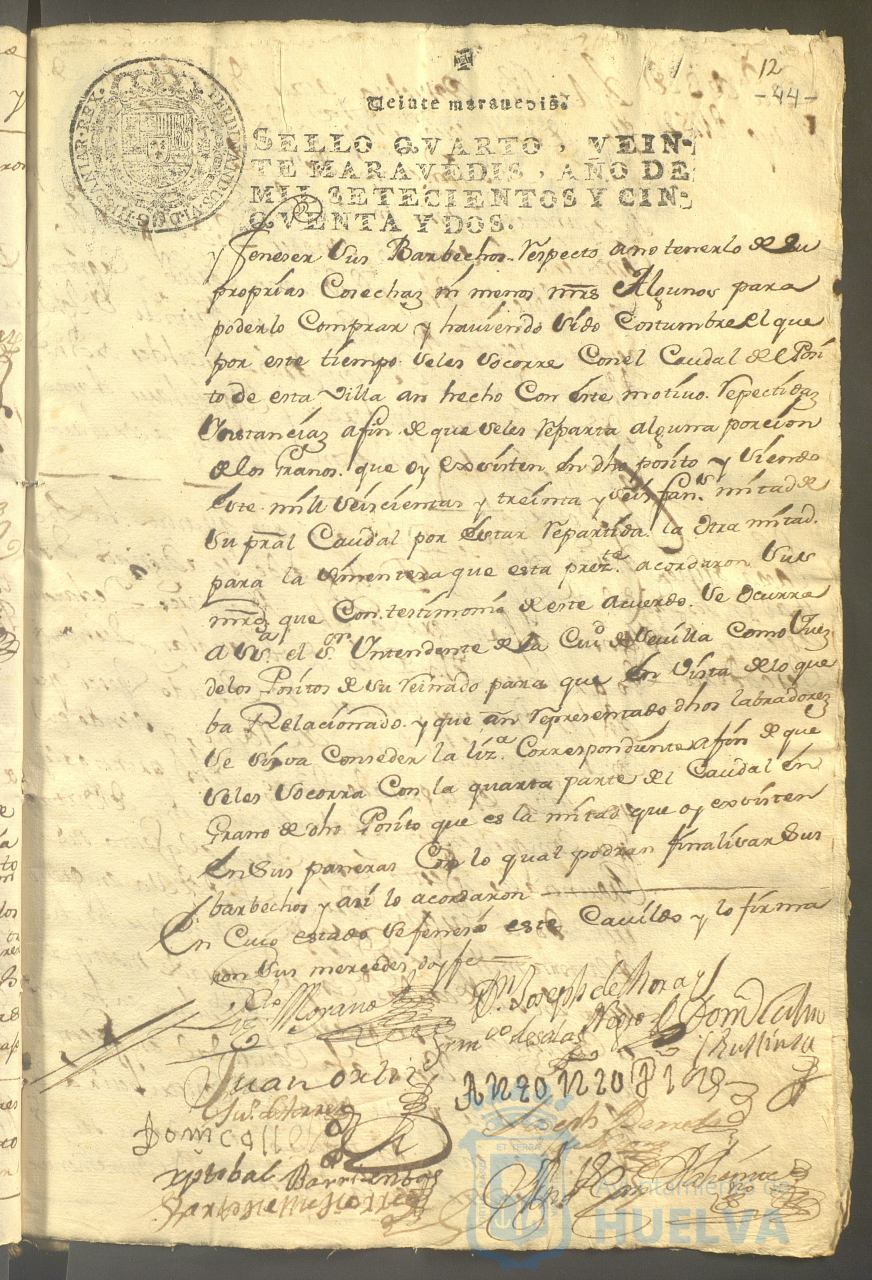 12
-44-
Veinte maravedis.
SELLO QVARTO, VEIN-
TE MARAVEDIS, AÑO DE
MIL SETECIENTOS Y CIN-
QVENTA Y DOS.
FERDINANDUS VI D.G. HISPANIAR. REX.
y feneser sus Barbechos respecto a no tenerlo de su
proprias Cosechas ni menos mrs Algunos para
poderlo Comprar y haviendo sido Costumbre el que
por este tiempo se les socorre Con el Caudal de el Posi
to de esta Villa an hecho Con este motivo repetidas
Instancias afin de que se les reparta alguna porcion
de los Granos que oy existen en dho posito y siendo
este mill seiscientas y treinta y seis fans mitad de
su pral Caudal por estar repartida la otra mitad
para la sementera que esta preste acordaron sus
mrds que Con testimonio de este acuerdo se ocurra
a Sa el Sor Yntendente de la Ciud de Sevilla como Juez
de los Positos de su reinado para que en vista de lo que
ba Relacionado y que an representado dhos labradores
se sirva Conseder la liza Correspondiente afin de que
se les socorra Con la quarta parte del Caudal en
Grano de dho Posito que es la mitad que oy existen
en sus paneras Con lo qual podran finalisar sus
barbechos y asi lo acordaron
En Cuio estado se feneció este Cavildo y lo firma
ron sus mercedes doy fee
Morano
Dn Joseph de Mora y
Negro
Juan ortiz
Antonio
Dom
xptobal Barrientos
Joseph
Ayuntamiento de
HUELVA